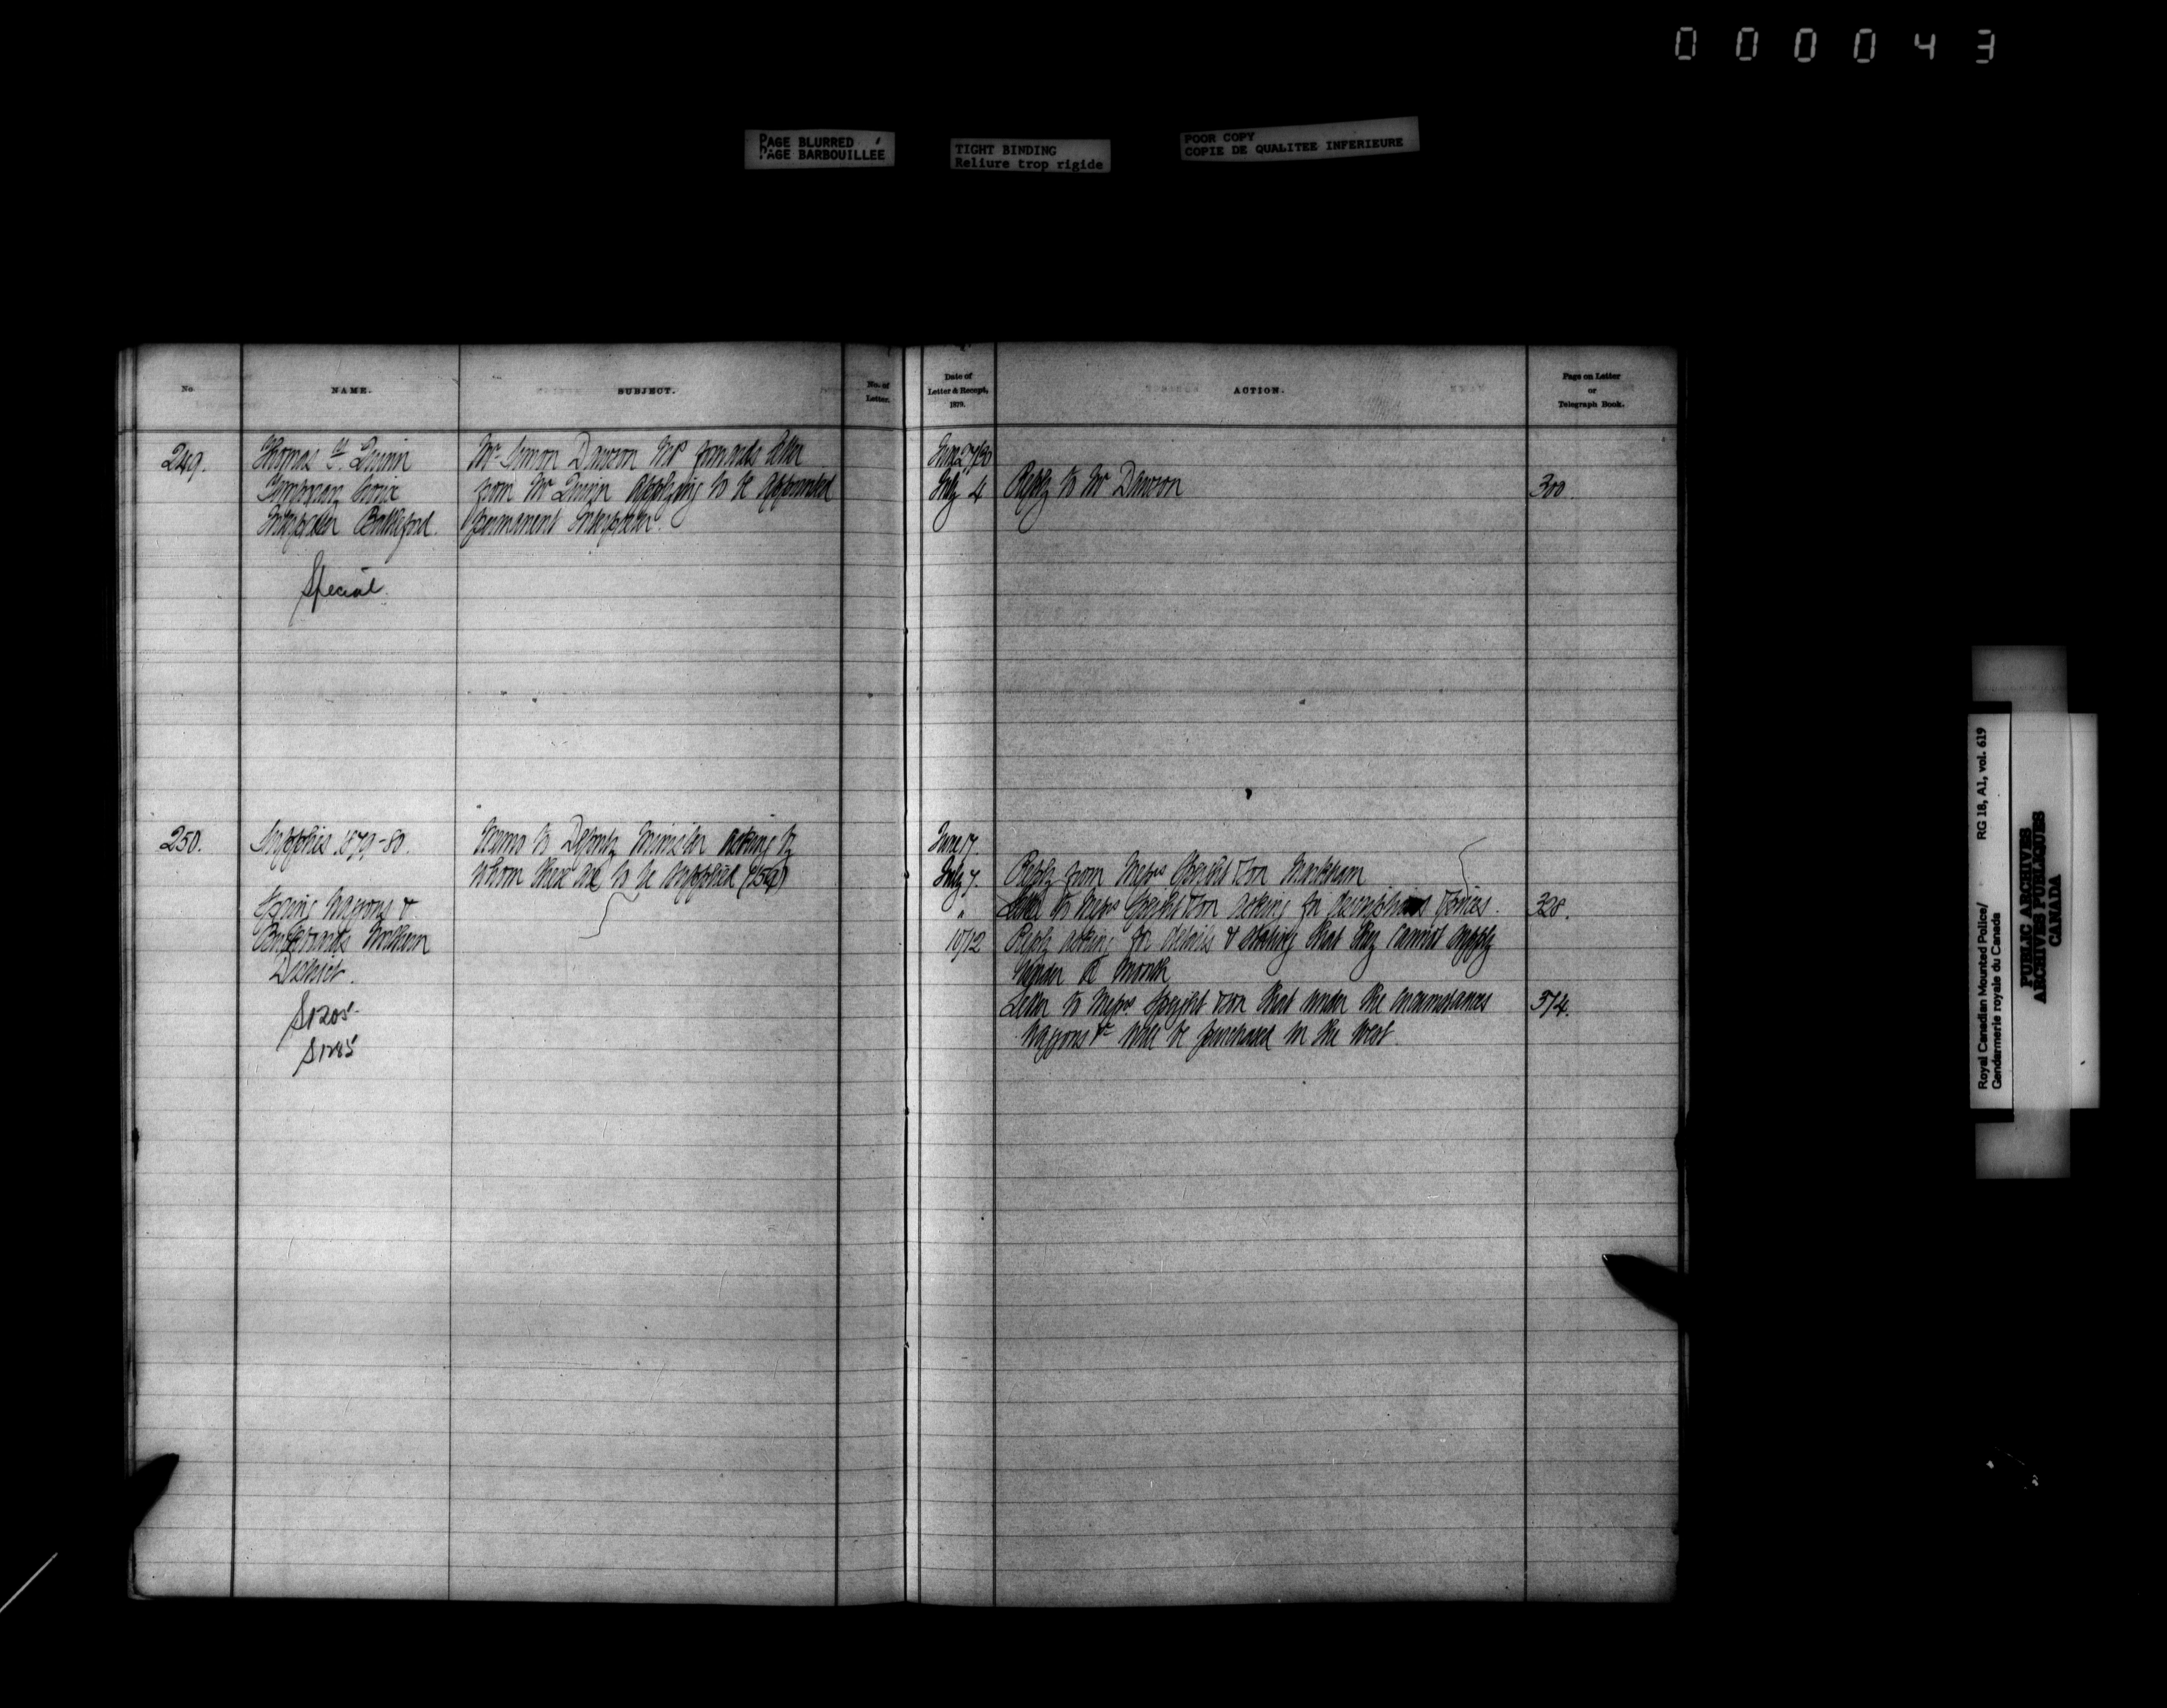 000043
PAGE BLURRED
PAGE BARBOUILLEE
TIGHT BINDING
Reliure trop rigide
POOR COPY
COPIE DE QUALITEE INFERIEURE
No.
NAME.
SUBJECT.
No. of
Letter.
Date of
Letter & Receipt,
1879.
ACTION.
Page on Letter
or
Telegraph Book.
249.
Thomas Quinn
Temporary
Interpreter Battleford.
Special.
Mr Simon Dawson MP forwards letter
from Mr Quinn applying to be appointed
permanent Interpreter.
June 27/30
July 4
Reply to Mr Dawson
300.
250.
Supplies 1879-80.
Spring Waggons &
Buckboards Northern
District.
S1205
Memo to Deputy Minister asking by
whom these are to be supplied
June 17.
July 7.
"
10/12
Reply from Messrs Speight & Son Markham
Letter to Messrs Speight & Son asking for descriptions & prices.
328.
Reply asking for details & stating that they cannot supply
under a month
Letter to Messrs Speight & Son that under the circumstances
374.
Waggons &c will be purchased in the West.
Royal Canadian Mounted Police/
Gendarmerie royale du Canada
RG 18, A1, vol. 619
PUBLIC ARCHIVES
ARCHIVES PUBLIQUES
CANADA